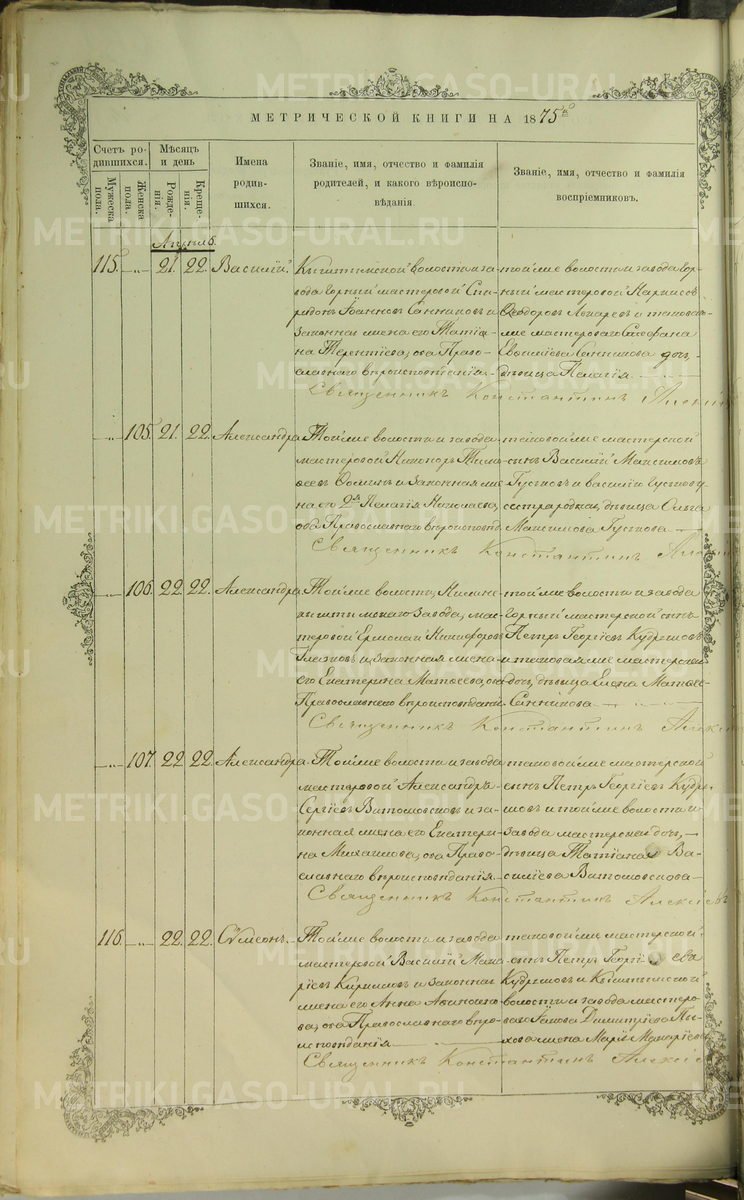 МЕТРИЧЕСКОЙ КНИГИ НА 1875й
Счетъ родившихся.
Мужеска пола.
Женска пола.
Мѣсяцъ и день
Рожденія.
Крещенія.
Имена родившихся.
Званіе, имя, отчество и фамилія родителей, и какого вѣроисповѣданія.
Званіе, имя, отчество и фамилія воспріемниковъ.
Апрѣль
115. — 21. 22. Василій.
Кыштымской волости и завода горный мастеровой Спиридонъ Іоанновъ Санниковъ и законная жена его Татіана Терентіева, оба Православнаго вѣроисповѣданія.
той же волости и завода горный мастеровой Наркиссъ Ѳеодоровъ и таковаго же мастероваго Стефана Евсиміева Санникова дочь, дѣвица Пелагія.
Священникъ Константинъ
— 105. 21. 22. Александра
Той же волости и завода мастеровой Никаноръ и законная жена его 2я Пелагія Николаева, оба Православнаго вѣроисповѣд.
таковой же мастерской сынъ Василій Максимовъ Гусковъ и Василію Гускову сестра родная, дѣвица Ольга Максимова Гускова
Священникъ Константинъ
— 106. 22. 22. Александра
Той же волости, Нижнекыштымскаго завода, мастеровой Ермолай Никифоровъ Глазковъ и законная жена его Екатерина Матвѣева, оба Православнаго вѣроисповѣдан.
той же волости и завода горный мастерской сынъ Петръ Георгіевъ Кудряшовъ и таковая же мастерская дочь, дѣвица Елена Матвѣе- Санникова
Священникъ Константинъ
— 107. 22. 22. Александра
Той же волости и завода мастеровой Александръ Сергіевъ Витомсковъ и законная жена его Екатерина Михайлова, оба Православнаго вѣроисповѣданія
таковой же мастерской сынъ Петръ Георгіевъ Кудряшовъ и той же волости и завода мастерская дочь, дѣвица Татіана Василіева Витомскова
Священникъ Константинъ Алексіевъ
116. — 22. 22. Сѵмеонъ.
Той же волости и завода мастеровой Василій Кириловъ и законная жена его Анна, оба Православнаго вѣроисповѣданія
таковой же мастерской сынъ Петръ Георгіевъ Кудряшовъ и Кыштымской волости и завода мастероваго Іакова Димитріева жена Марія Макаріева
Священникъ Константинъ Алексіе
METRIKI.GASO-URAL.RU